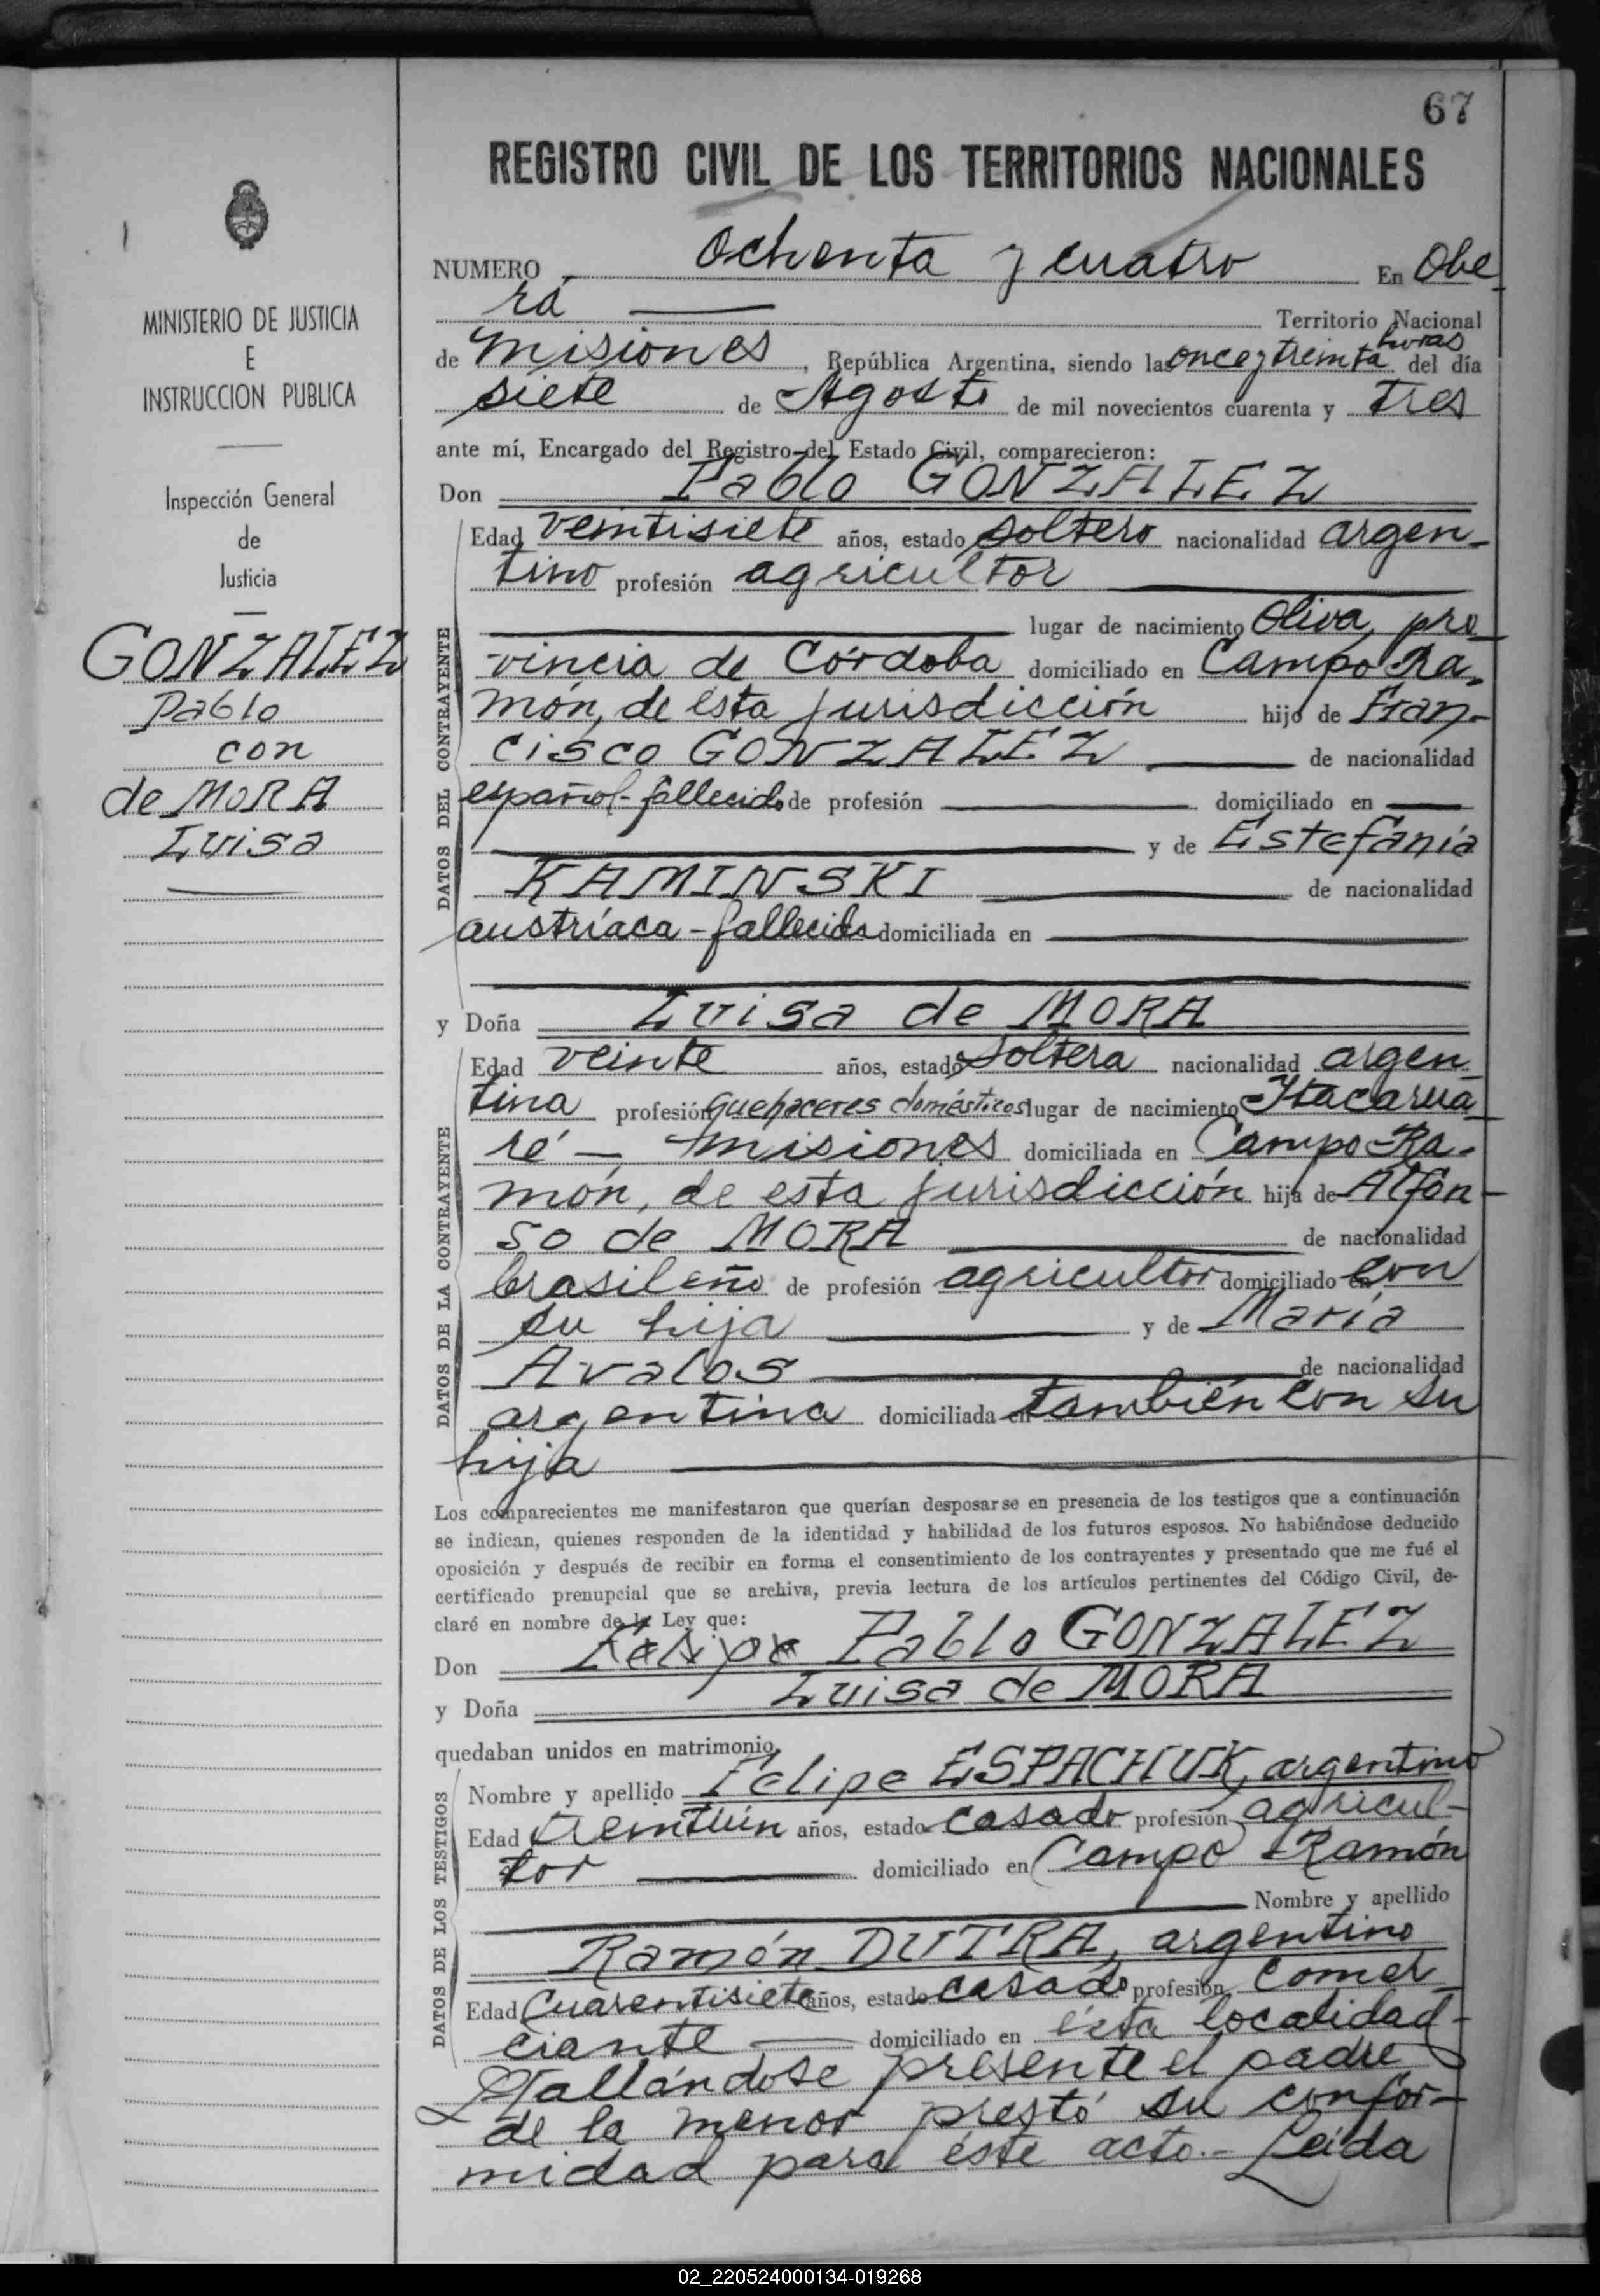 67
REGISTRO CIVIL DE LOS TERRITORIOS NACIONALES
MINISTERIO DE JUSTICIA
E
INSTRUCCION PUBLICA
Inspección General
de
Justicia
GONZALEZ
Pablo
con
de MORA
Luisa
NUMERO ochenta y cuatro En Obe
rá Territorio Nacional
de Misiones, República Argentina, siendo las once y treinta horas del día
siete de Agosto de mil novecientos cuarenta y tres
ante mí, Encargado del Registro del Estado Civil, comparecieron:
Don Pablo GONZALEZ
DATOS DEL CONTRAYENTE
Edad veintisiete años, estado soltero nacionalidad argen-
tino profesión agricultor
lugar de nacimiento Oliva, pro
vincia de Córdoba domiciliado en Campo Ra-
món, de esta jurisdicción hijo de Fran-
cisco GONZALEZ de nacionalidad
español-fallecido de profesión domiciliado en
y de Estefanía
KAMINSKI de nacionalidad
austríaca-fallecida domiciliada en
y Doña Luisa de MORA
DATOS DE LA CONTRAYENTE
Edad veinte años, estado soltera nacionalidad argen
tina profesión quehaceres domésticos lugar de nacimiento Itacarua
ré - Misiones domiciliada en Campo Ra-
món, de esta jurisdicción hija de Alfon-
so de MORA de nacionalidad
brasileño de profesión agricultor domiciliado en con
su hija y de María
Avalos de nacionalidad
argentina domiciliada en también con su
hija
Los comparecientes me manifestaron que querían desposarse en presencia de los testigos que a continuación
se indican, quienes responden de la identidad y habilidad de los futuros esposos. No habiéndose deducido
oposición y después de recibir en forma el consentimiento de los contrayentes y presentado que me fué el
certificado prenupcial que se archiva, previa lectura de los artículos pertinentes del Código Civil, de-
claré en nombre de la Ley que:
Don Pablo GONZALEZ
y Doña Luisa de MORA
quedaban unidos en matrimonio.
DATOS DE LOS TESTIGOS
Nombre y apellido Felipe ESPACHUK, argentino
Edad treintiún años, estado casado profesión agricul-
tor domiciliado en Campo Ramón
Nombre y apellido
Ramón DUTRA, argentino
Edad cuarentisiete años, estado casado profesión comer
ciante domiciliado en ésta localidad-
Hallándose presente el padre
de la menor prestó su confor-
midad para éste acto.- Leída
02_220524000134-019268